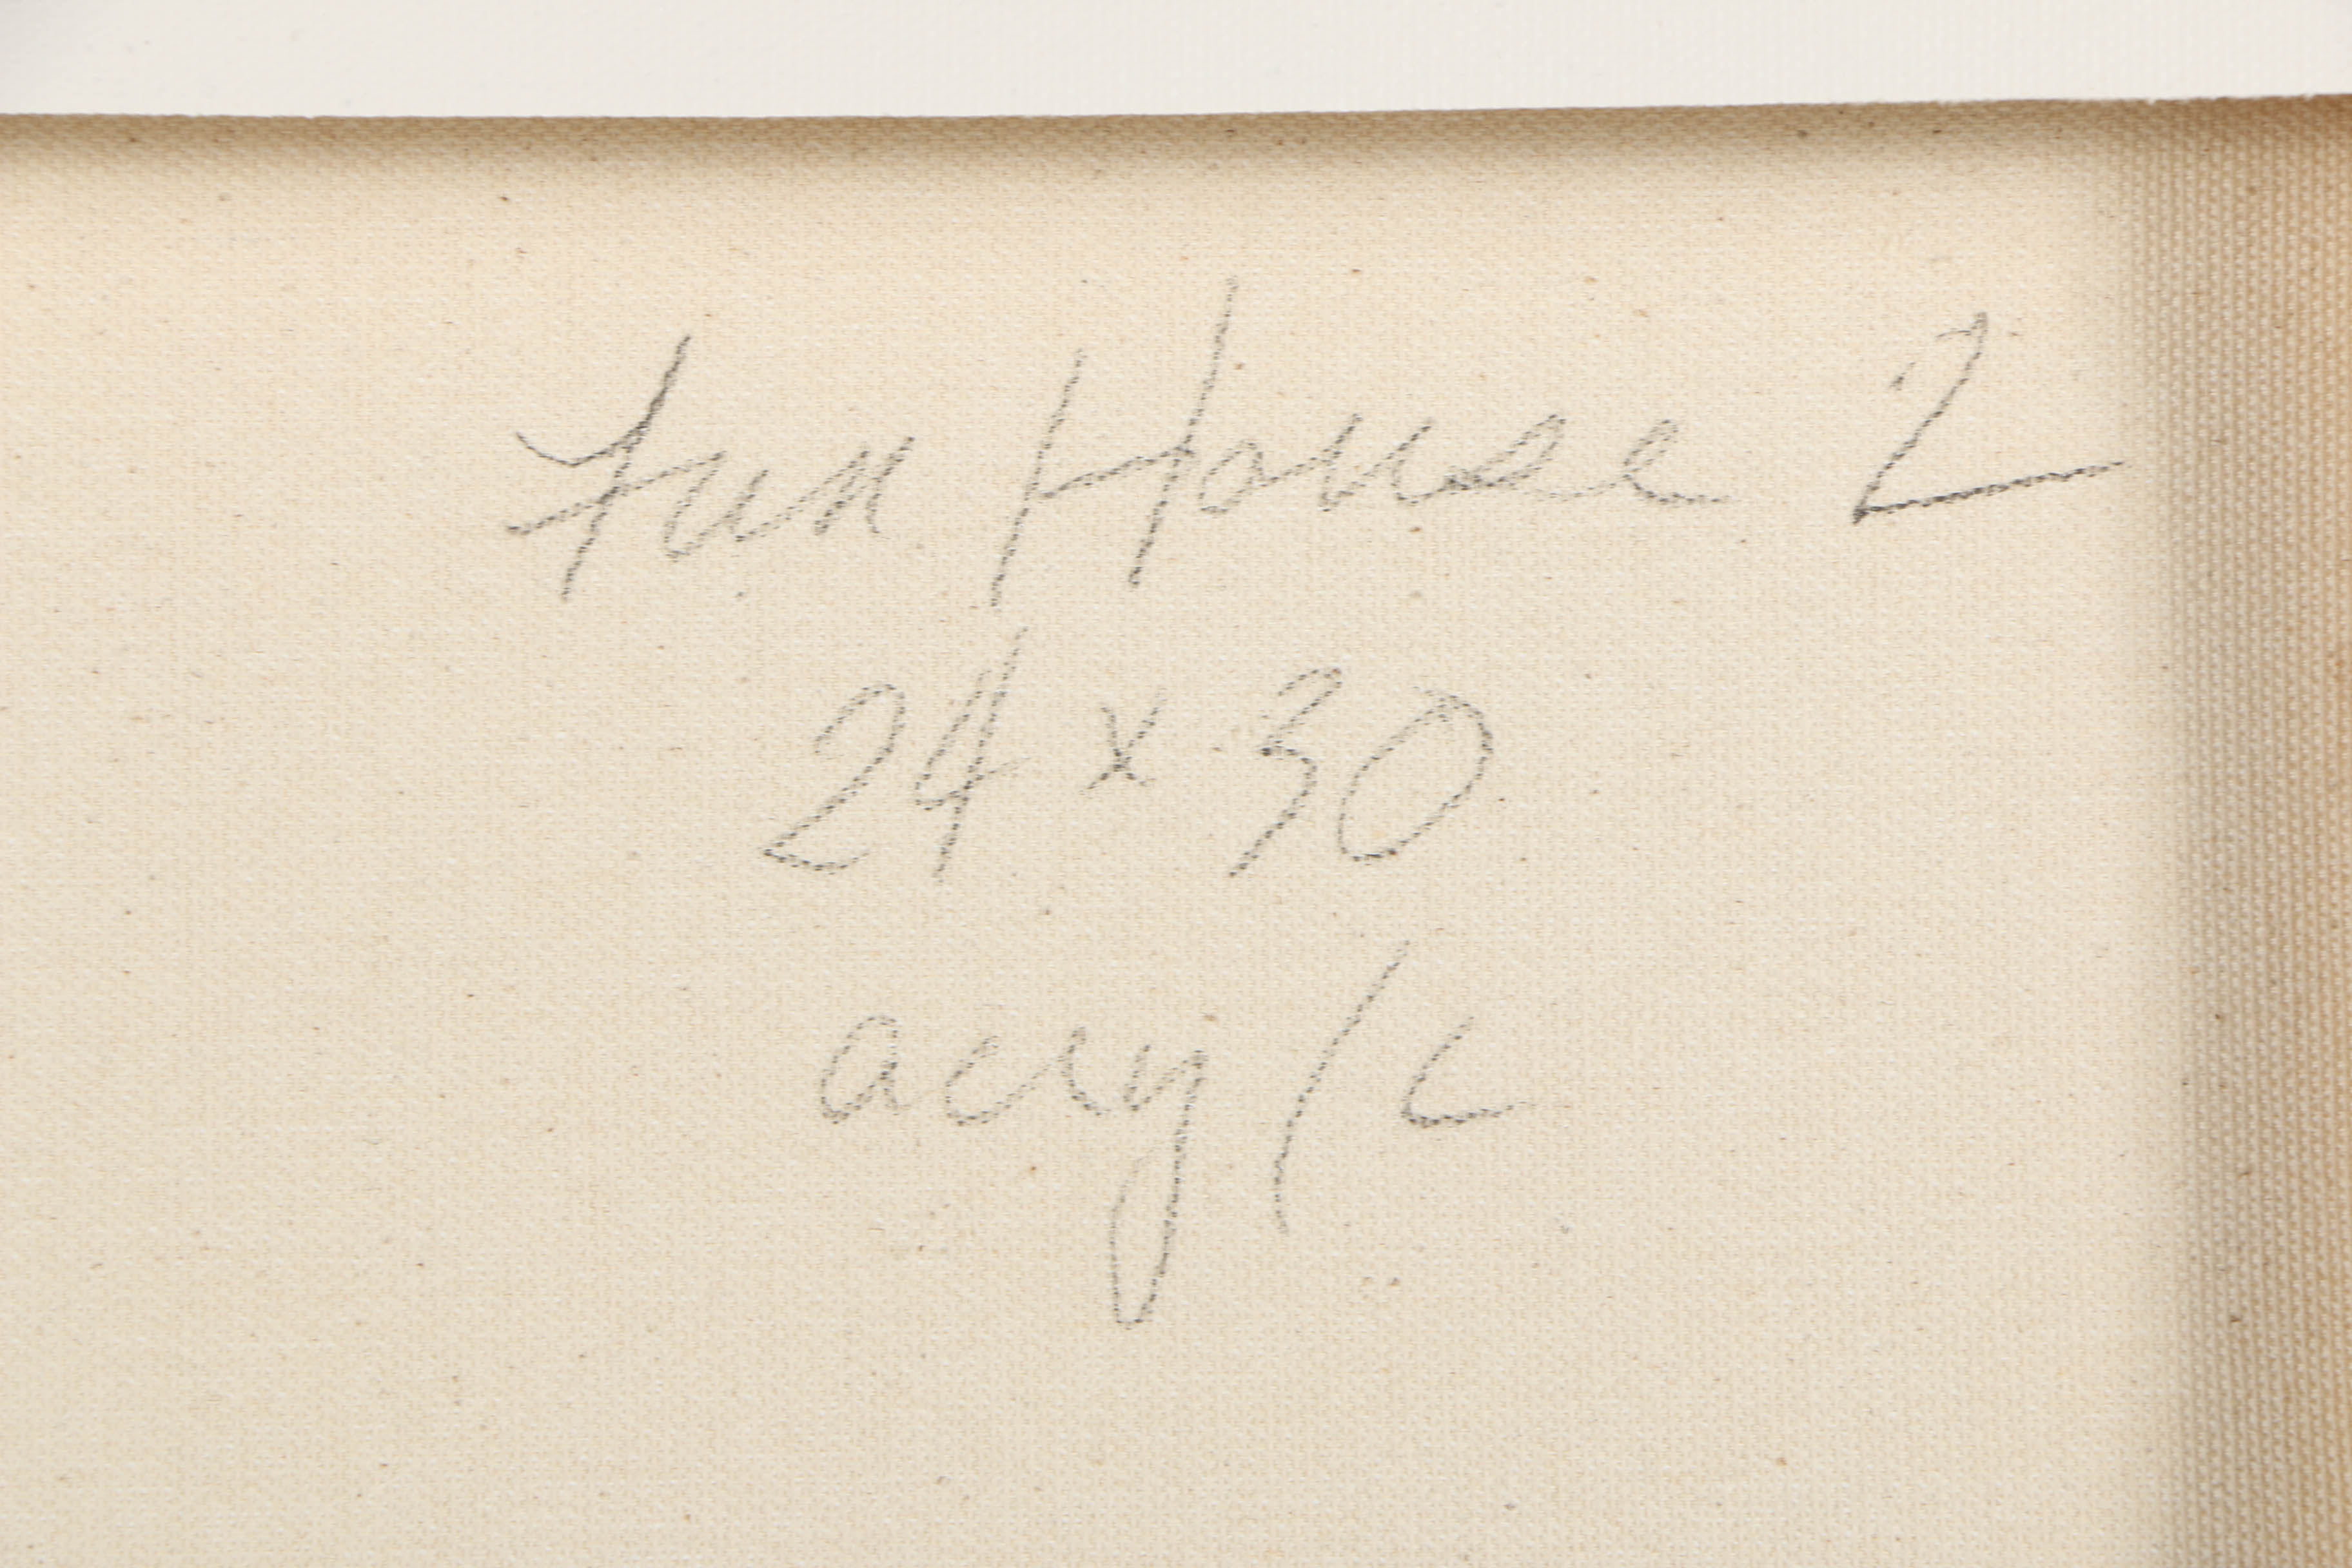 Fun House 2
24 x 30
acry/c